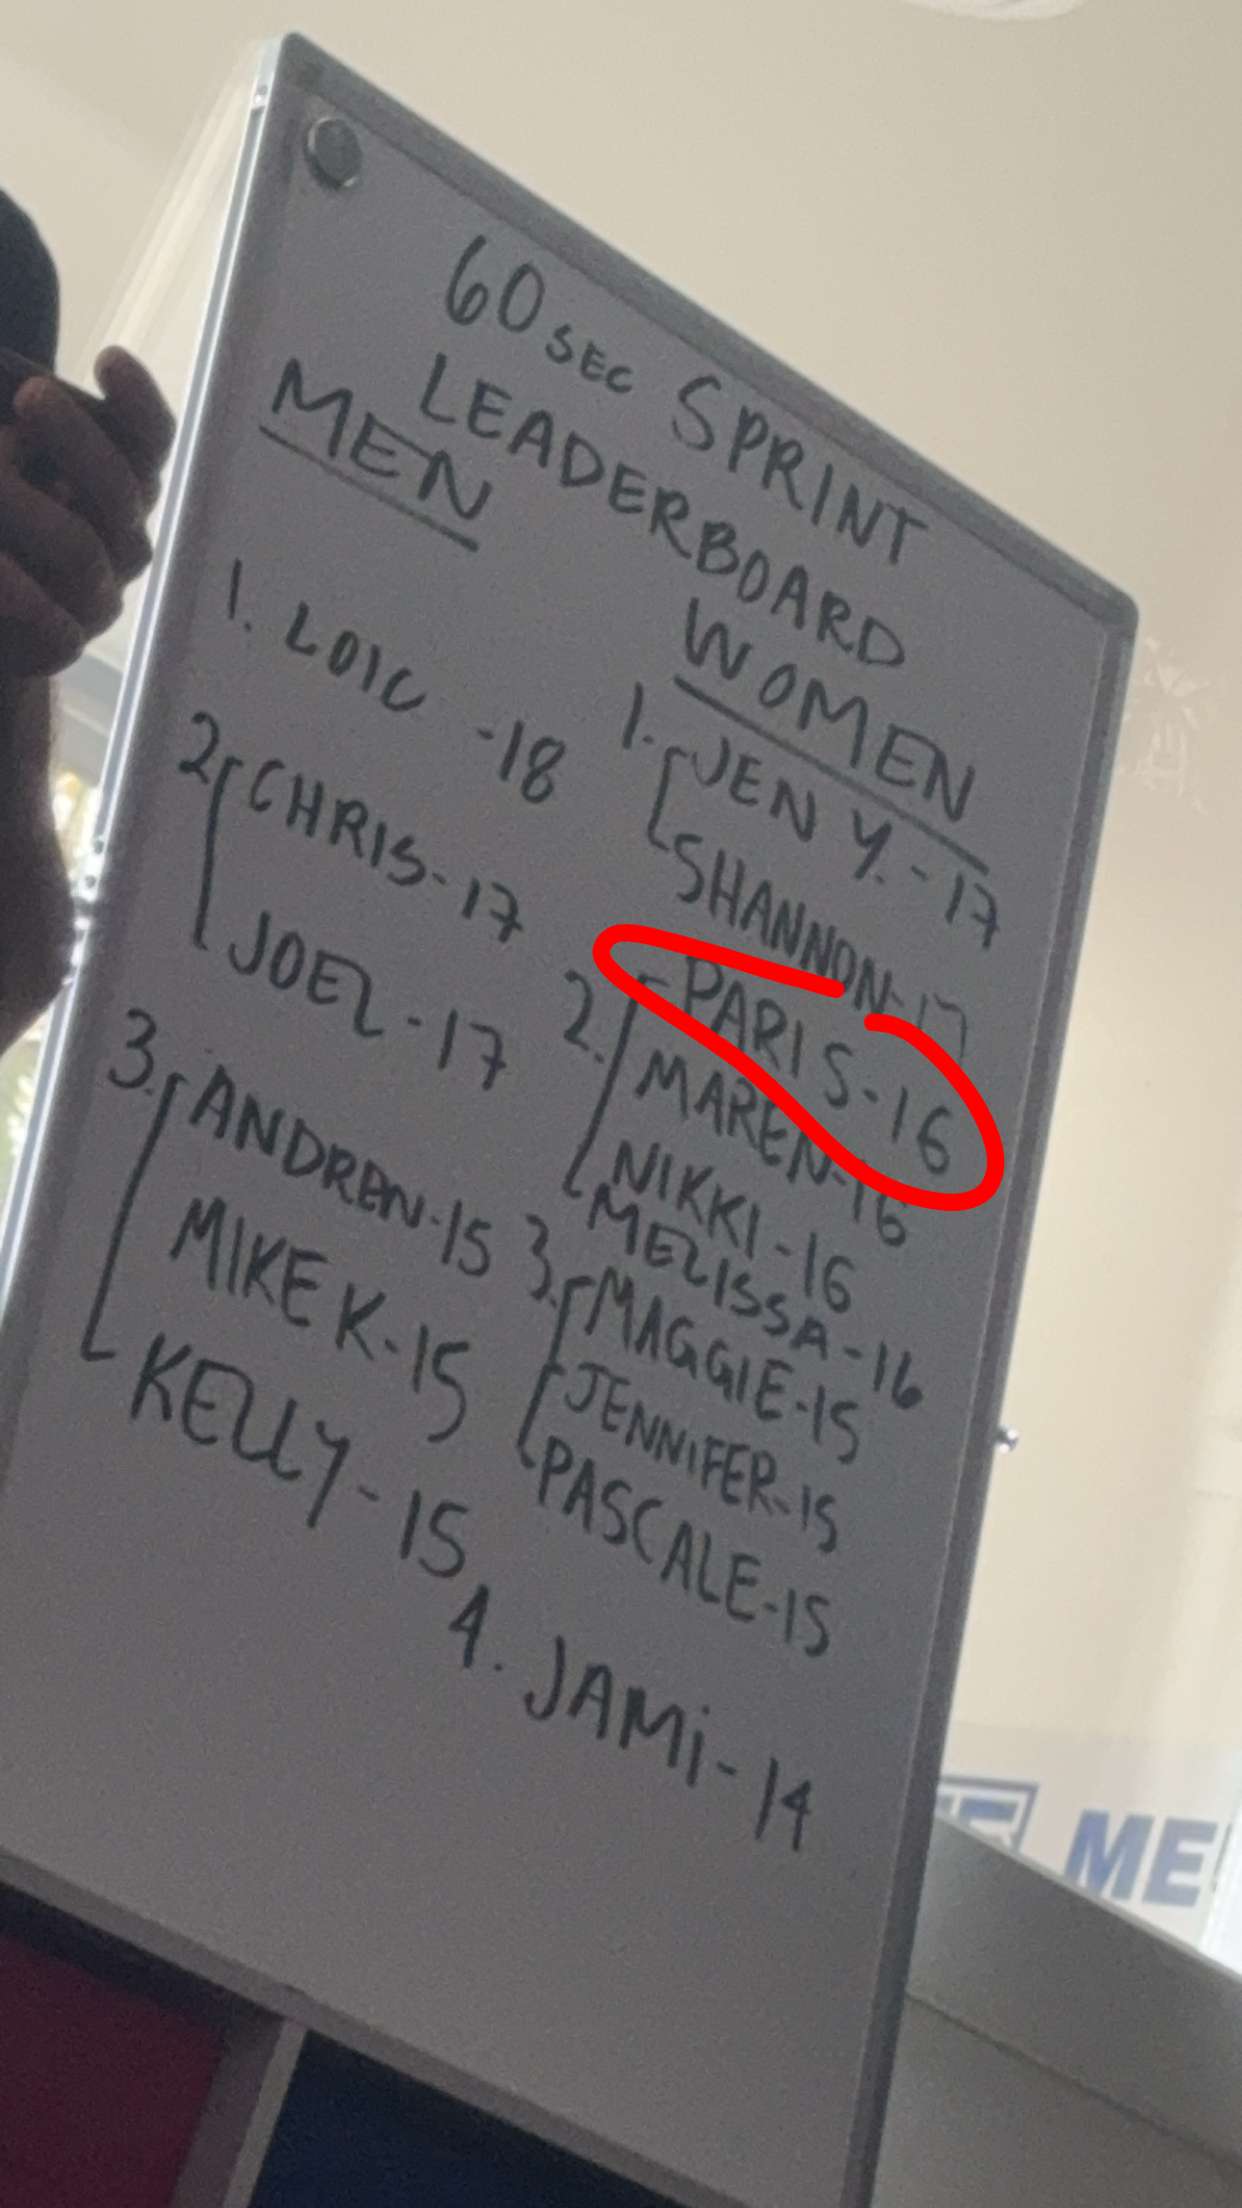 60 SEC SPRINT
LEADERBOARD
MEN
1. LOIC - 18
2. CHRIS - 17
JOEL - 17
3. ANDREN - 15
MIKE K - 15
KELLY - 15
WOMEN
1. JEN Y. - 17
SHANNON - 17
2. PARIS - 16
MAREN - 16
NIKKI - 16
MELISSA - 16
3. MAGGIE - 15
JENNIFER - 15
PASCALE - 15
4. JAMi - 14
ME